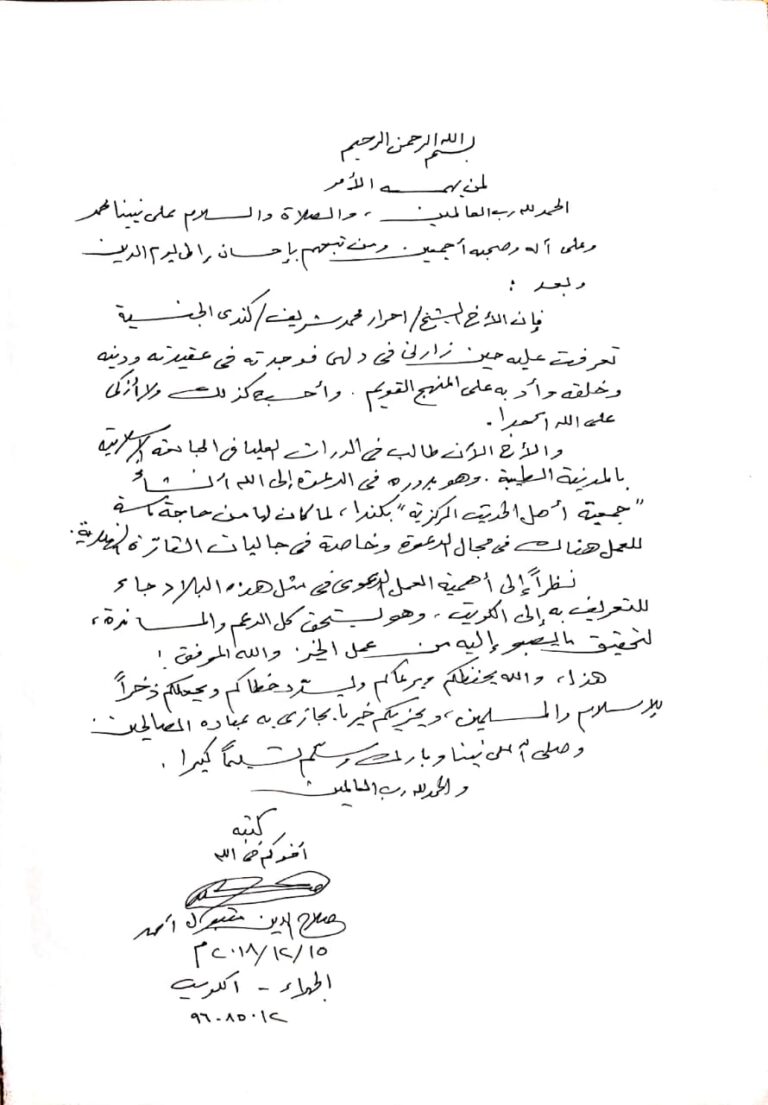 بسم الله الرحمن الرحيم
لمن يهمه الأمر
الحمد لله رب العالمين، والصلاة والسلام على نبينا محمد
وعلى آله وصحبه أجمعين ومن تبعهم بإحسان إلى يوم الدين
وبعد :
فإن الأخ الشيخ/ احرار محمد شريف/ كندى الجنسية
تعرفت عليه حين زارنى فى دلهى فوجدته فى عقيدته ودينه
وخلقه وأدبه على المنهج القويم. وأحسبه كذلك ولا أزكى
على الله احدا.
والأخ الآن طالب فى الدراسات العليا فى الجامعة الإسلامية
بالمدينة الطيبة. وهو بدوره فى الدعوة إلى الله أنشاء
"جمعية أهل الحديث المركزية" بكندا، لما كان لها من حاجة ماسة
للعمل هناك فى مجال الدعوة وخاصة فى جاليات القارة الهندية.
نظراً إلى أهمية العمل الدعوى فى مثل هذه البلاد جاء
للتعريف به إلى الكويت، وهو يستحق كل الدعم والمساندة،
لتحقيق ما يصبو إليه من عمل الخير. والله الموفق!
هذا، والله يحفظكم ويرعاكم ويسدد خطاكم ويجعلكم ذخراً
للإسلام والمسلمين، ويجزيكم خير ما يجازى به عباده الصالحين
وصلى الله على نبينا وبارك وسلم تسليماً كثيرا.
والحمد لله رب العالمين
كتبه
أخوكم فى الله
صلاح الدين مقبول أحمد
١٥/١٢/٢٠١٨م
الجهراء - الكويت
٩٦٠٨٥٠١٢